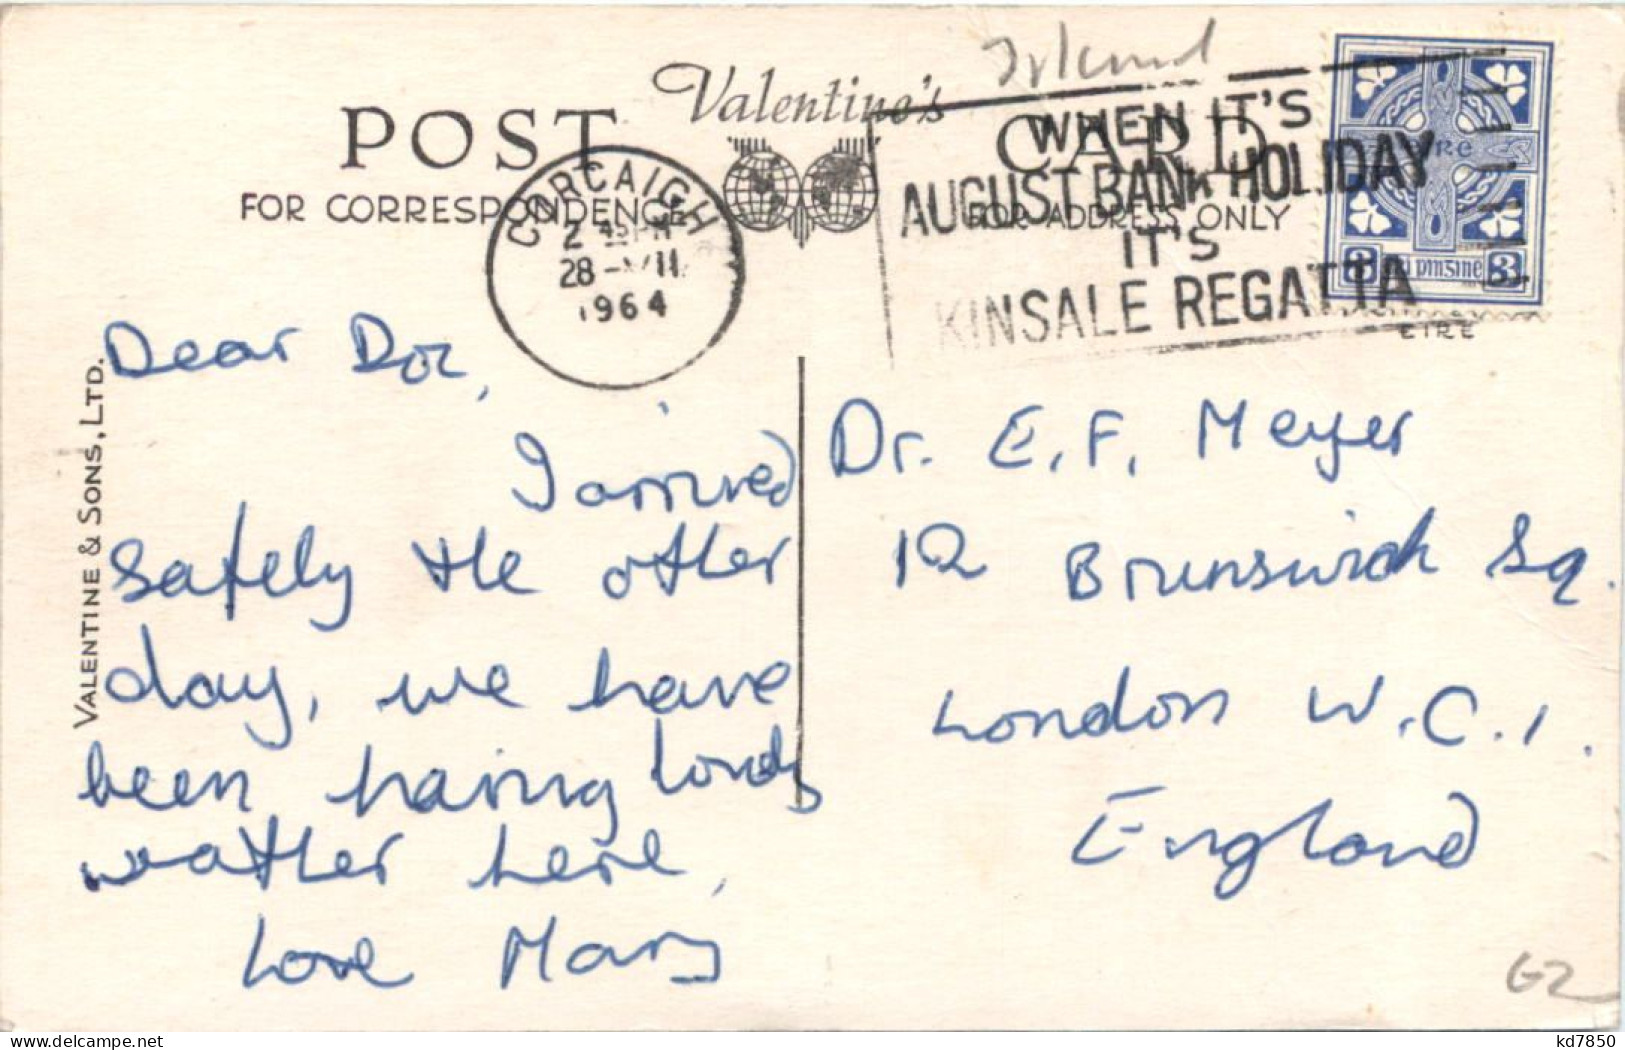 Irland
Valentine's
POST CARD
FOR CORRESPONDENCE
FOR ADDRESS ONLY
CORCAIGH
2 45 PM
28-VII
1964
WHEN IT'S
AUGUST BANK HOLIDAY
IT'S
KINSALE REGATTA
3 3
EIRE
VALENTINE & SONS, LTD.
Dear Doc,
I arrived
safely the other
day, we have
been having lovely
weather here,
Love Mary
Dr. E. F. Meyer
12 Brunswick Sq.
London W.C.1.
England
GZ
kd7850